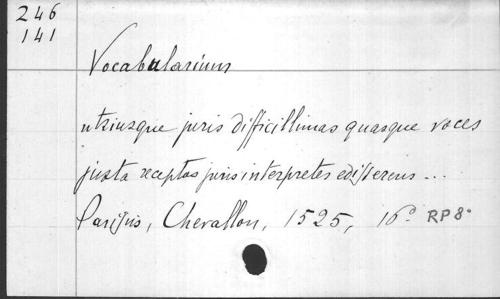 246
141
Vocabularium
utriusque juris difficillimas quasque voces
juxta receptos juris interpretes edisserens ...
Parisiis, Chevallon, 1525, 16° RP 8°